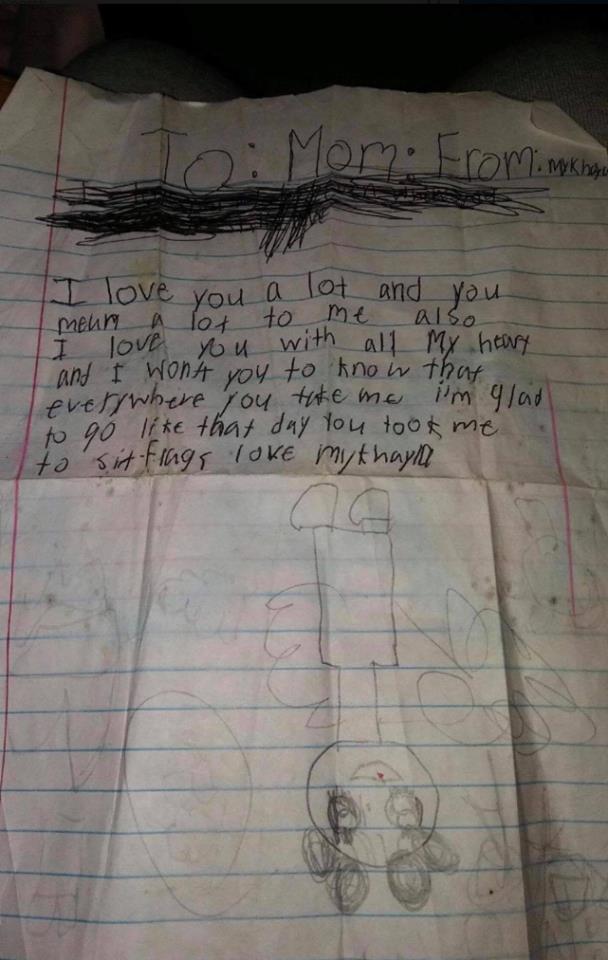 To: Mom: From: Mykhayla
I love you a lot and you
mean a lot to me also
I love you with all My heart
and I wont you to know that
everywhere you take me i'm glad
to go like that day You took me
to sit flags love mykhayla